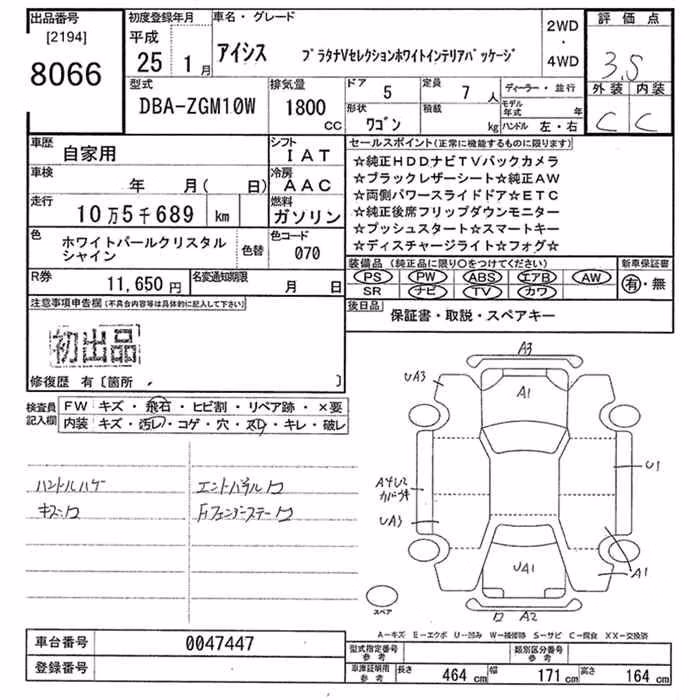 出品番号
[2194]
8066
初度登録年月
平成
25 1月
車名・グレード
アイシス プラタナVセレクションホワイトインテリアパッケージ
2WD
・
4WD
評価点
3.5
外装 内装
C C
型式
DBA-ZGM10W
排気量
1800
CC
ドア
5
定員
7人
形状
ワゴン
積載
kg
ディーラー・並行
モデル年式 年
ハンドル 左・右
車歴
自家用
シフト
IAT
車検
年 月( 日)
冷房
AAC
走行
10万5千689 km
燃料
ガソリン
色
ホワイトパールクリスタル
シャイン
色替
色コード
070
R券
11,650円
名変通知期限
月 日
セールスポイント(正常に機能するものに限ります)
☆純正HDDナビTVバックカメラ
☆ブラックレザーシート☆純正AW
☆両側パワースライドドア☆ETC
☆純正後席フリップダウンモニター
☆プッシュスタート☆スマートキー
☆ディスチャージライト☆フォグ☆
装備品(純正品に限り○をつけてください)
新車保証書
PS PW ABS エアB AW
SR ナビ TV カワ
有・無
後日品
保証書・取説・スペアキー
注意事項申告欄(不具合内容等は具体的に記入して下さい)
初出品
修復歴 有〔箇所 〕
検査員
記入欄
FW キズ・飛石・ヒビ割・リペア跡・×要
内装 キズ・汚レ・コゲ・穴・スレ・キレ・破レ
ハンドルハゲ
エントパネルワ
キズワ
A3
UA3
A1
U1
UA3
UA1
A1
A2
スペア
A-キズ E-エクボ U-凹み W-補修跡 S-サビ C-腐食 XX-交換済
車台番号
0047447
登録番号
型式指定番号
参考
類別区分番号
参考
車庫証明指
参考
長さ 464 cm 幅 171 cm 高さ 164 cm